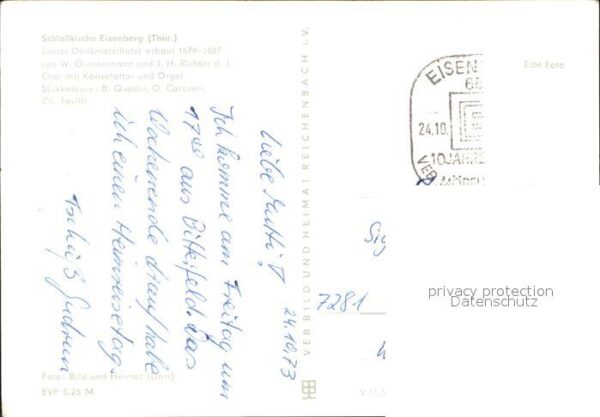 Schloßkirche Eisenberg (Thür.)
(unter Denkmalschutz) erbaut 1679–1687
von W. Gundermann und J. H. Richter d. J.
Chor mit Kanzelaltar und Orgel
Stukkateure: B. Quadri, G. Caroveri,
Ch. Tavilli
24.10.73
Liebe Mutti!
Ich komme am Freitag um
17 aus Bitterfeld. Das
Wochenende drauf habe
ich einen Heimreisetag.
Tschüß Gudrun
Foto: Bild und Heimat (Darr)
EVP 0.25 M
VEB BILD UND HEIMAT REICHENBACH i. V.
EISEN
24.10.
10 JAHRE
VEB
Echt Foto
7281
privacy protection
Datenschutz
V 11